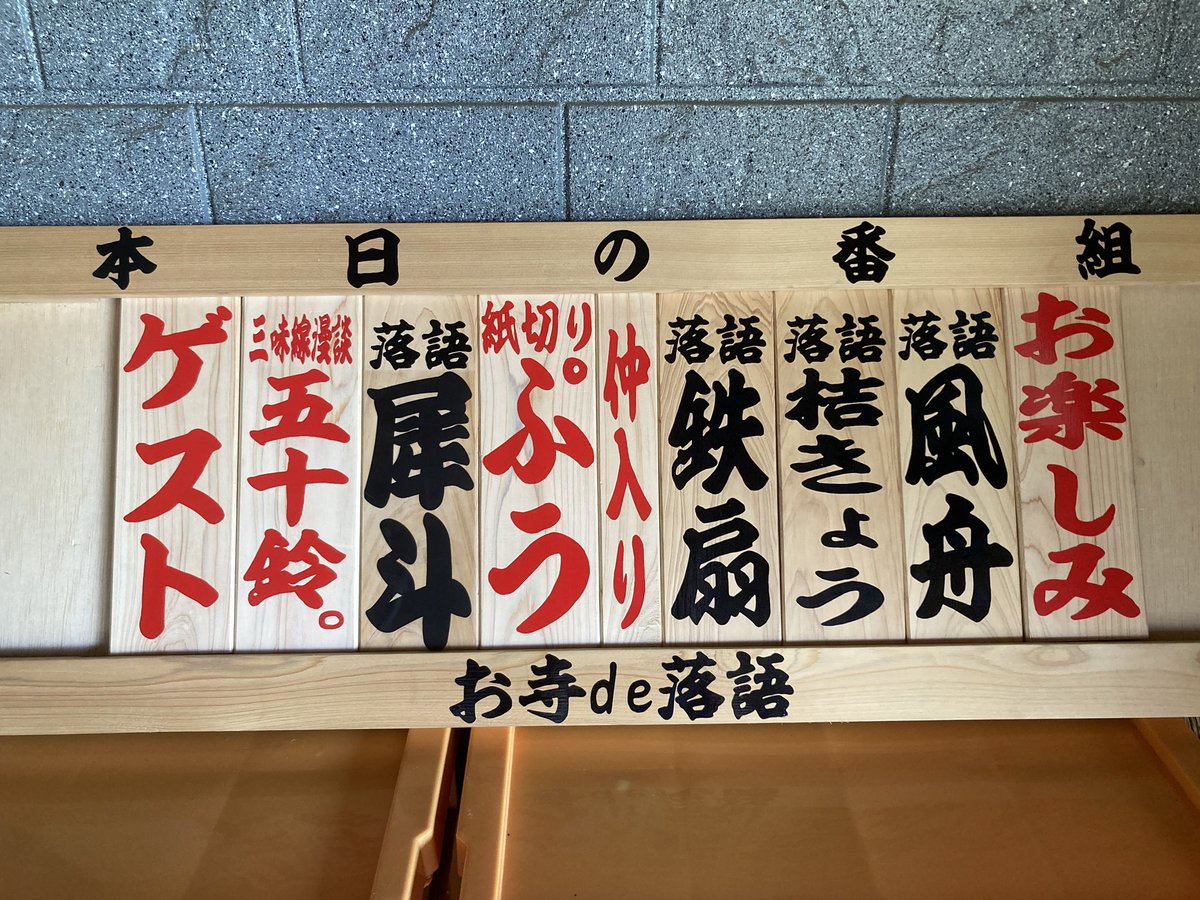 本日の番組
お楽しみ
落語
風舟
落語
桔きょう
落語
鉄扇
仲入り
紙切り
ぷう
落語
犀斗
三味線漫談
五十鈴。
ゲスト
お寺de落語